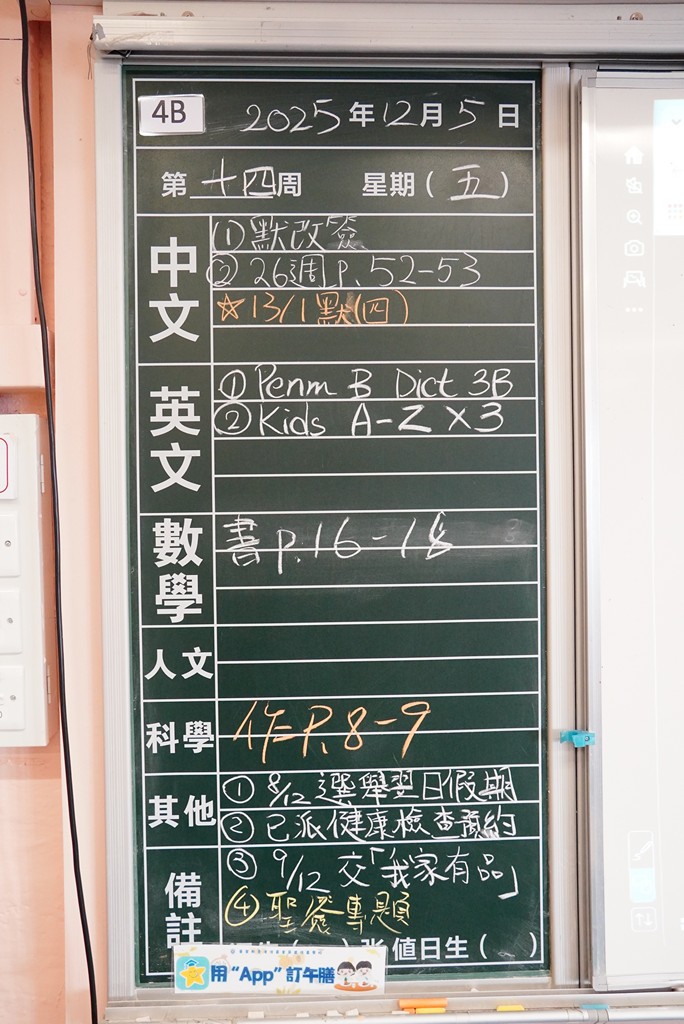 4B 2025年12月5日
第十四周 星期(五)
中文
①默改簽
②26週P.52-53
☆13/1默(四)
英文
①Penm B Dict 3B
②Kids A-Z×3
數學
書p.16-18
人文
科學
作二P.8-9
其他
①8/12選舉翌日假期
②已派健康檢查預約
備註
③9/12交「我家有品」
④聖誕專題
值日生( )
用“App”訂午膳